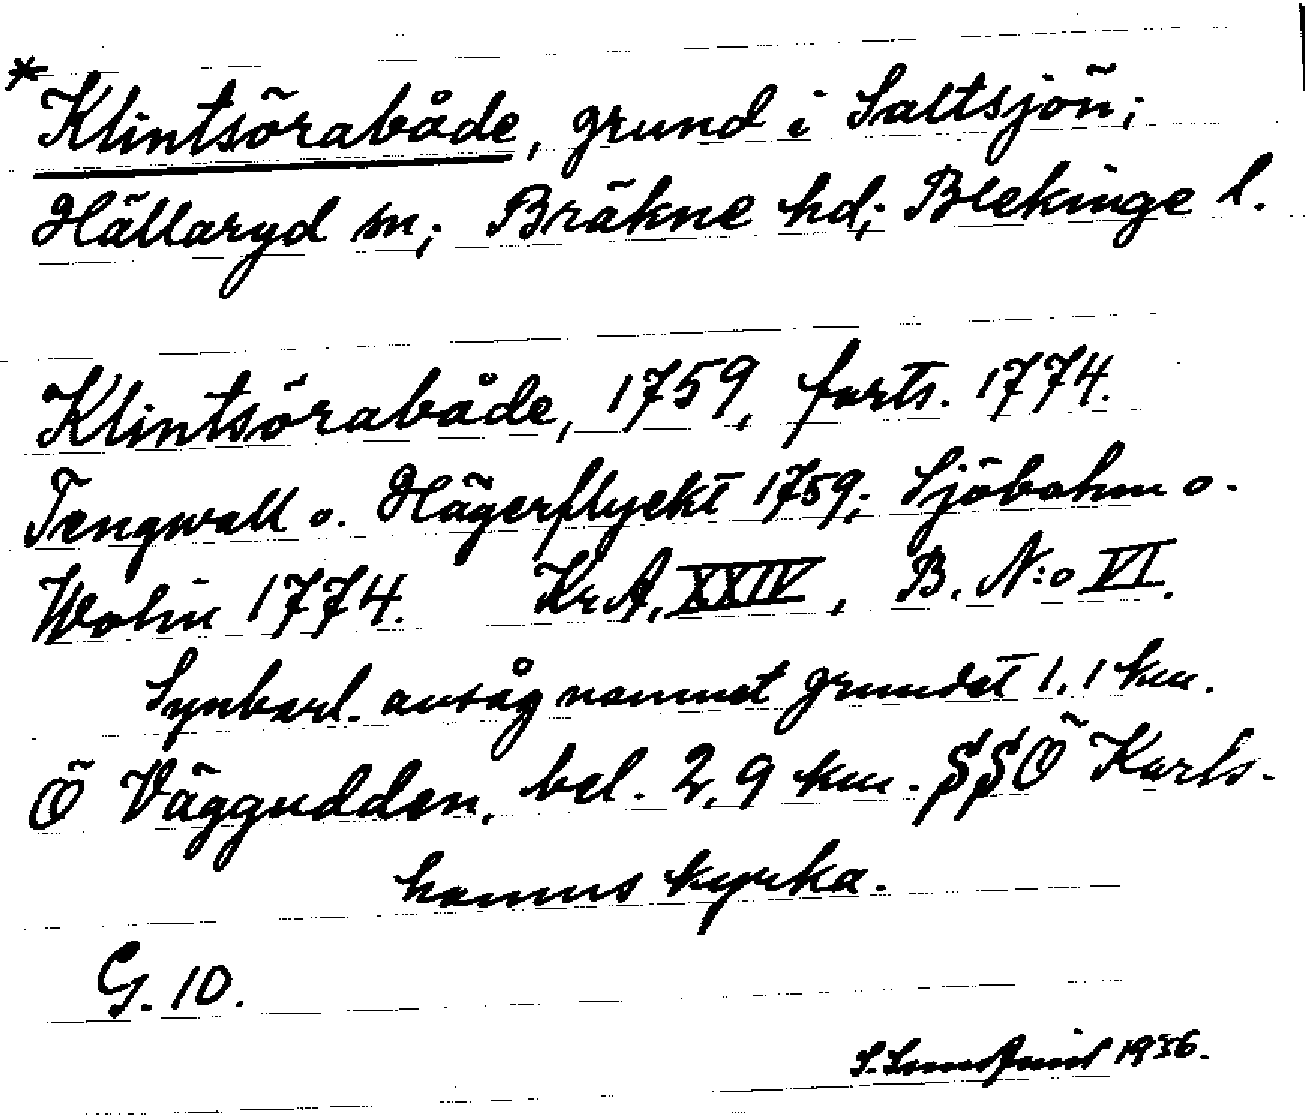 *Klintsörabåde, grund i Saltsjön;
Hällaryd sn; Bräkne hd; Blekinge l.
Klintsörabåde, 1759, forts. 1774.
Tengwall o. Hägerflyckt 1759; Sjöbohm o.
Wolin 1774. Kr.A. XXIV, B. N:o VI.
Synbarl. avsåg namnet grundet 1,1 km.
Ö Väggudden, bel. 2,9 km. §§Ö Karls-
hamns kyrka.
G. 10.
1936.